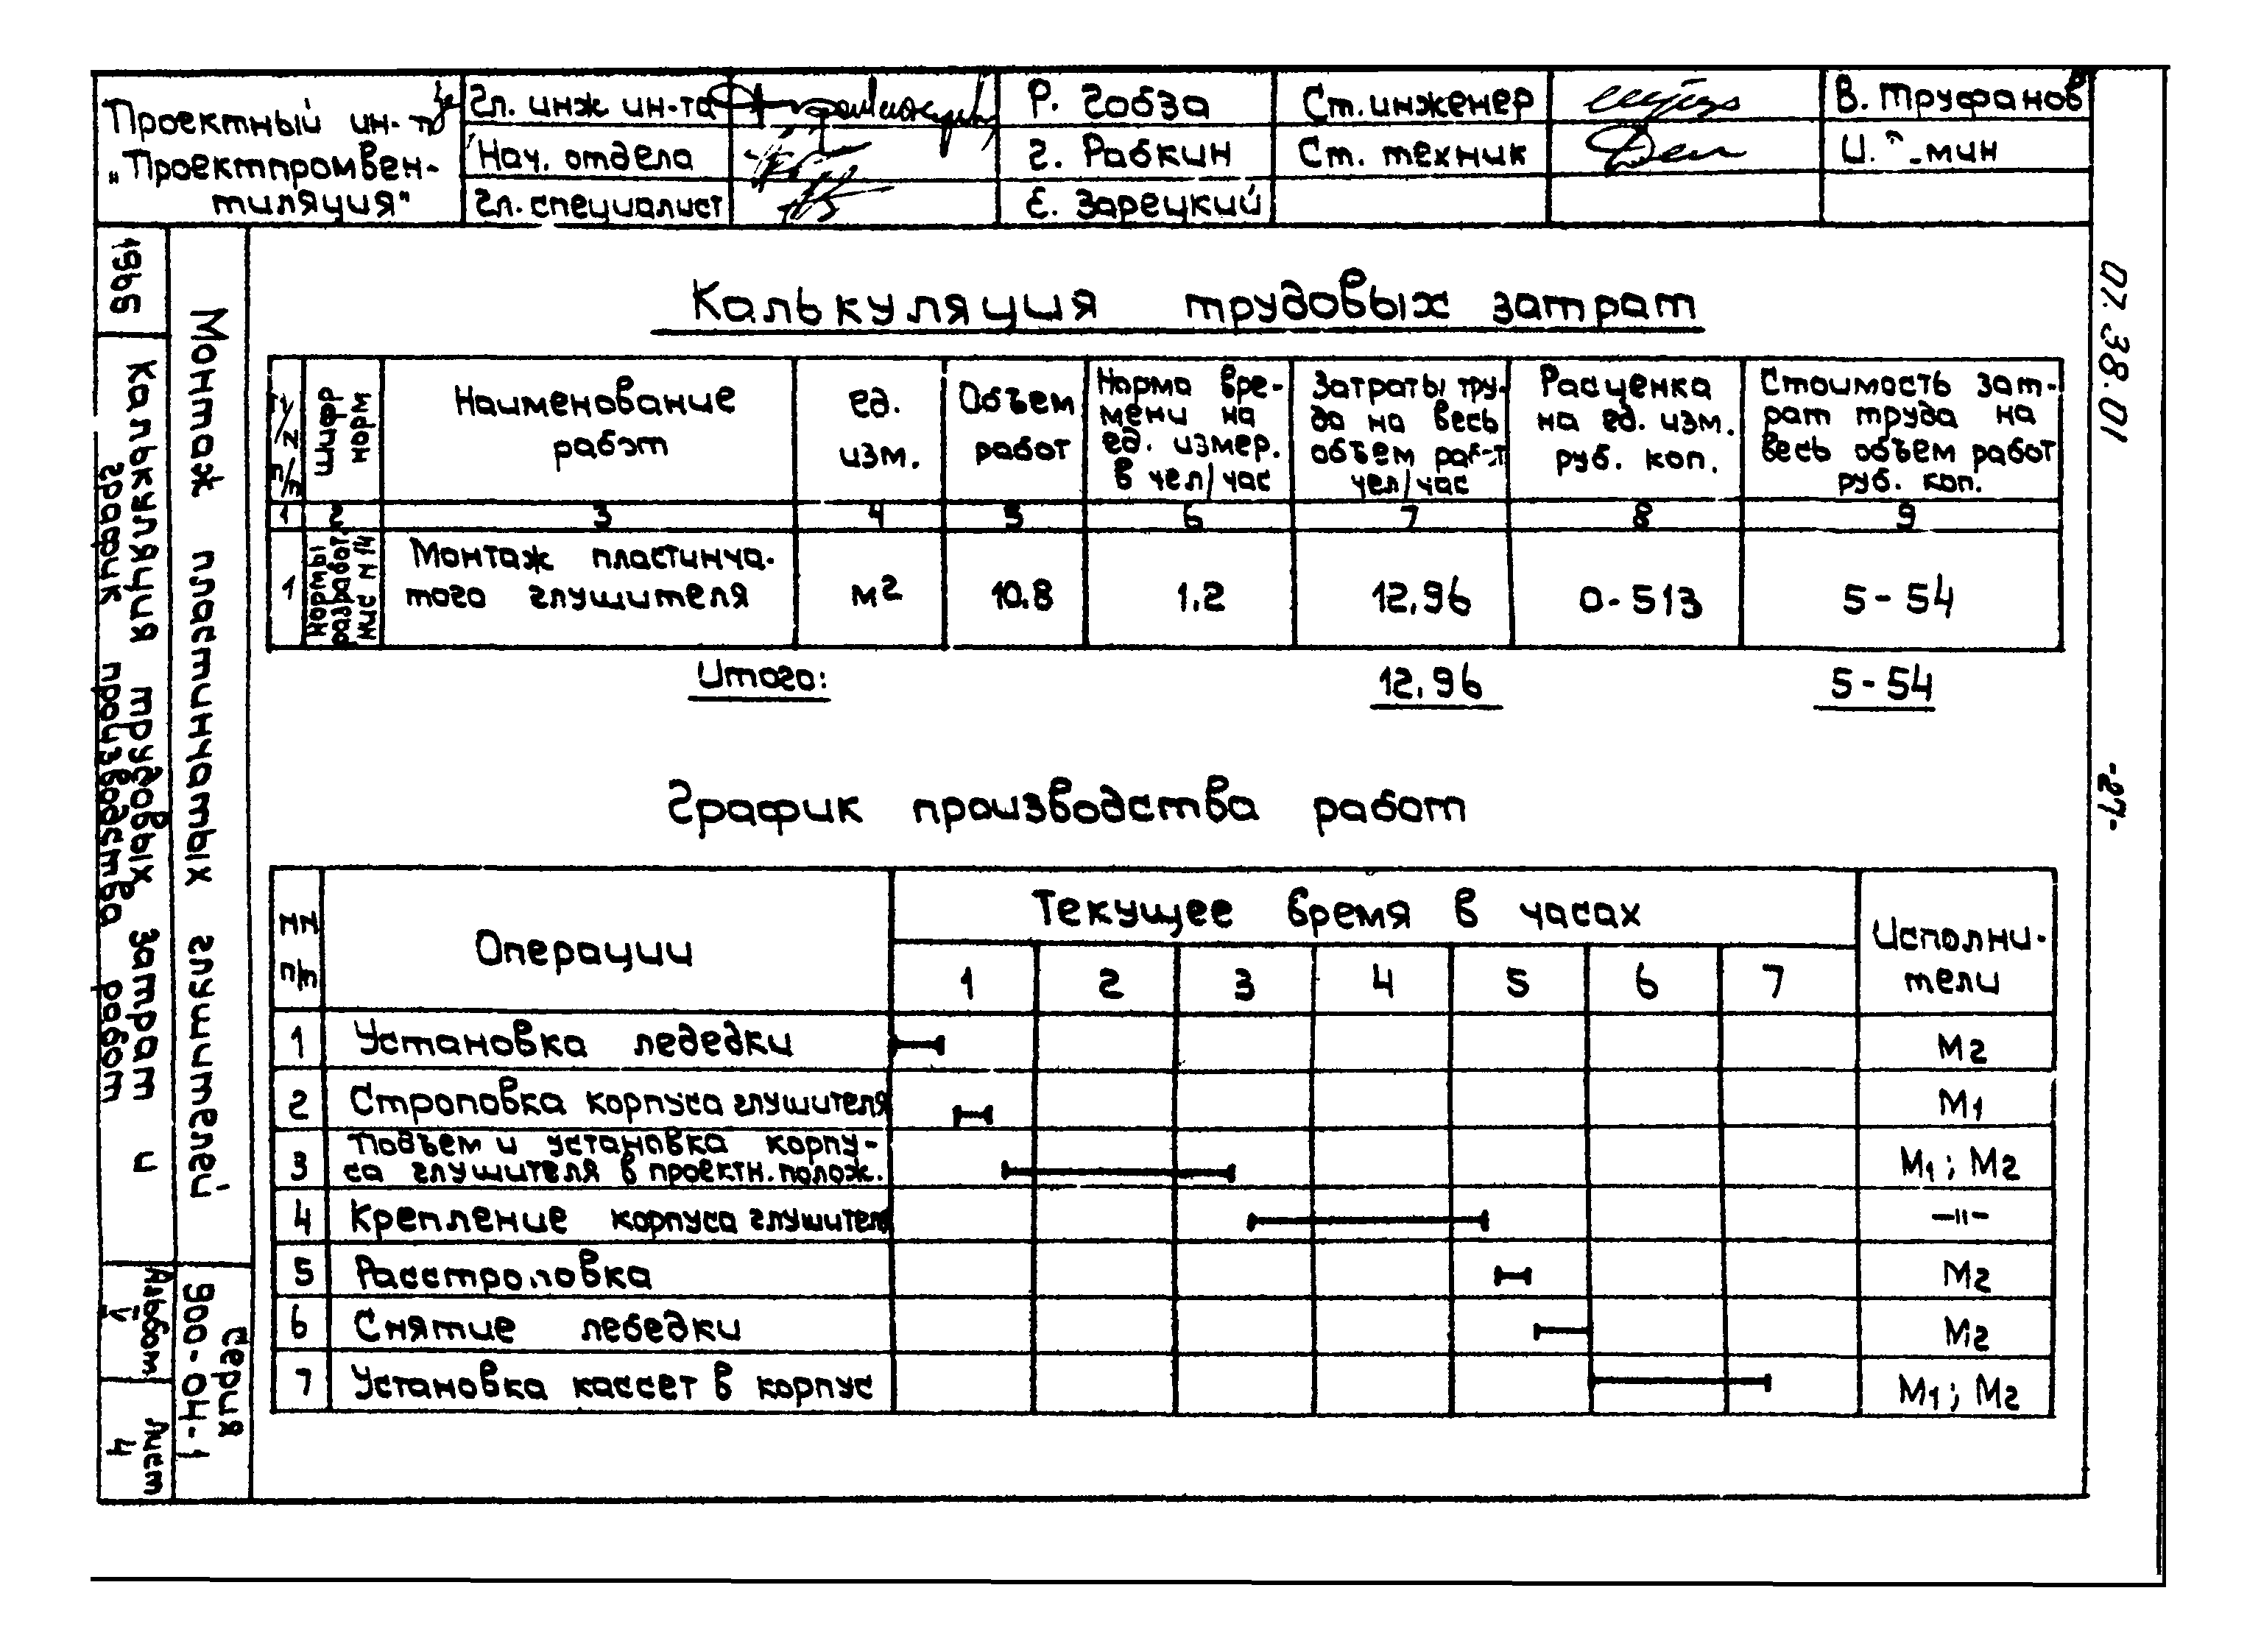 Проектный ин-т
„Проектпромвен-
тиляция"
Гл. инж ин-та
Р. Гобза
Ст. инженер
В. Труфанов
Нач. отдела
Г. Рабкин
Ст. техник
И.
Гл. специалист
Е. Зарецкий
1966
Калькуляция трудовых затрат и
график производства работ
Монтаж пластинчатых глушителей
Альбом
V
Лист
4
Серия
900-ОН-1
07.38.01
-27-
Калькуляция трудовых затрат
N/N п/п
Шифр норм
Наименование
работ
ед.
изм.
Объем
работ
Норма вре-
мени на
ед. измер.
в чел/час
Затраты тру-
да на весь
объем работ
чел/час
Расценка
на ед. изм.
руб. коп.
Стоимость зат-
рат труда на
весь объем работ
руб. коп.
1 2 3 4 5 6 7 8 9
1
Нормы
разработ.
НИС N 14
Монтаж пластинча-
того глушителя
м2 10.8 1.2 12.96 0-513 5-54
Итого: 12.96 5-54
График производства работ
NN
п/п
Операции
Текущее время в часах
Исполни-
тели
1 2 3 4 5 6 7
1 Установка ледедки М2
2 Строповка корпуса глушителя М1
3 Подъем и установка корпу-
са глушителя в проектн. полож. М1; М2
4 Крепление корпуса глушителя —"—
5 Расстроповка М2
6 Снятие лебедки М2
7 Установка кассет в корпус М1; М2